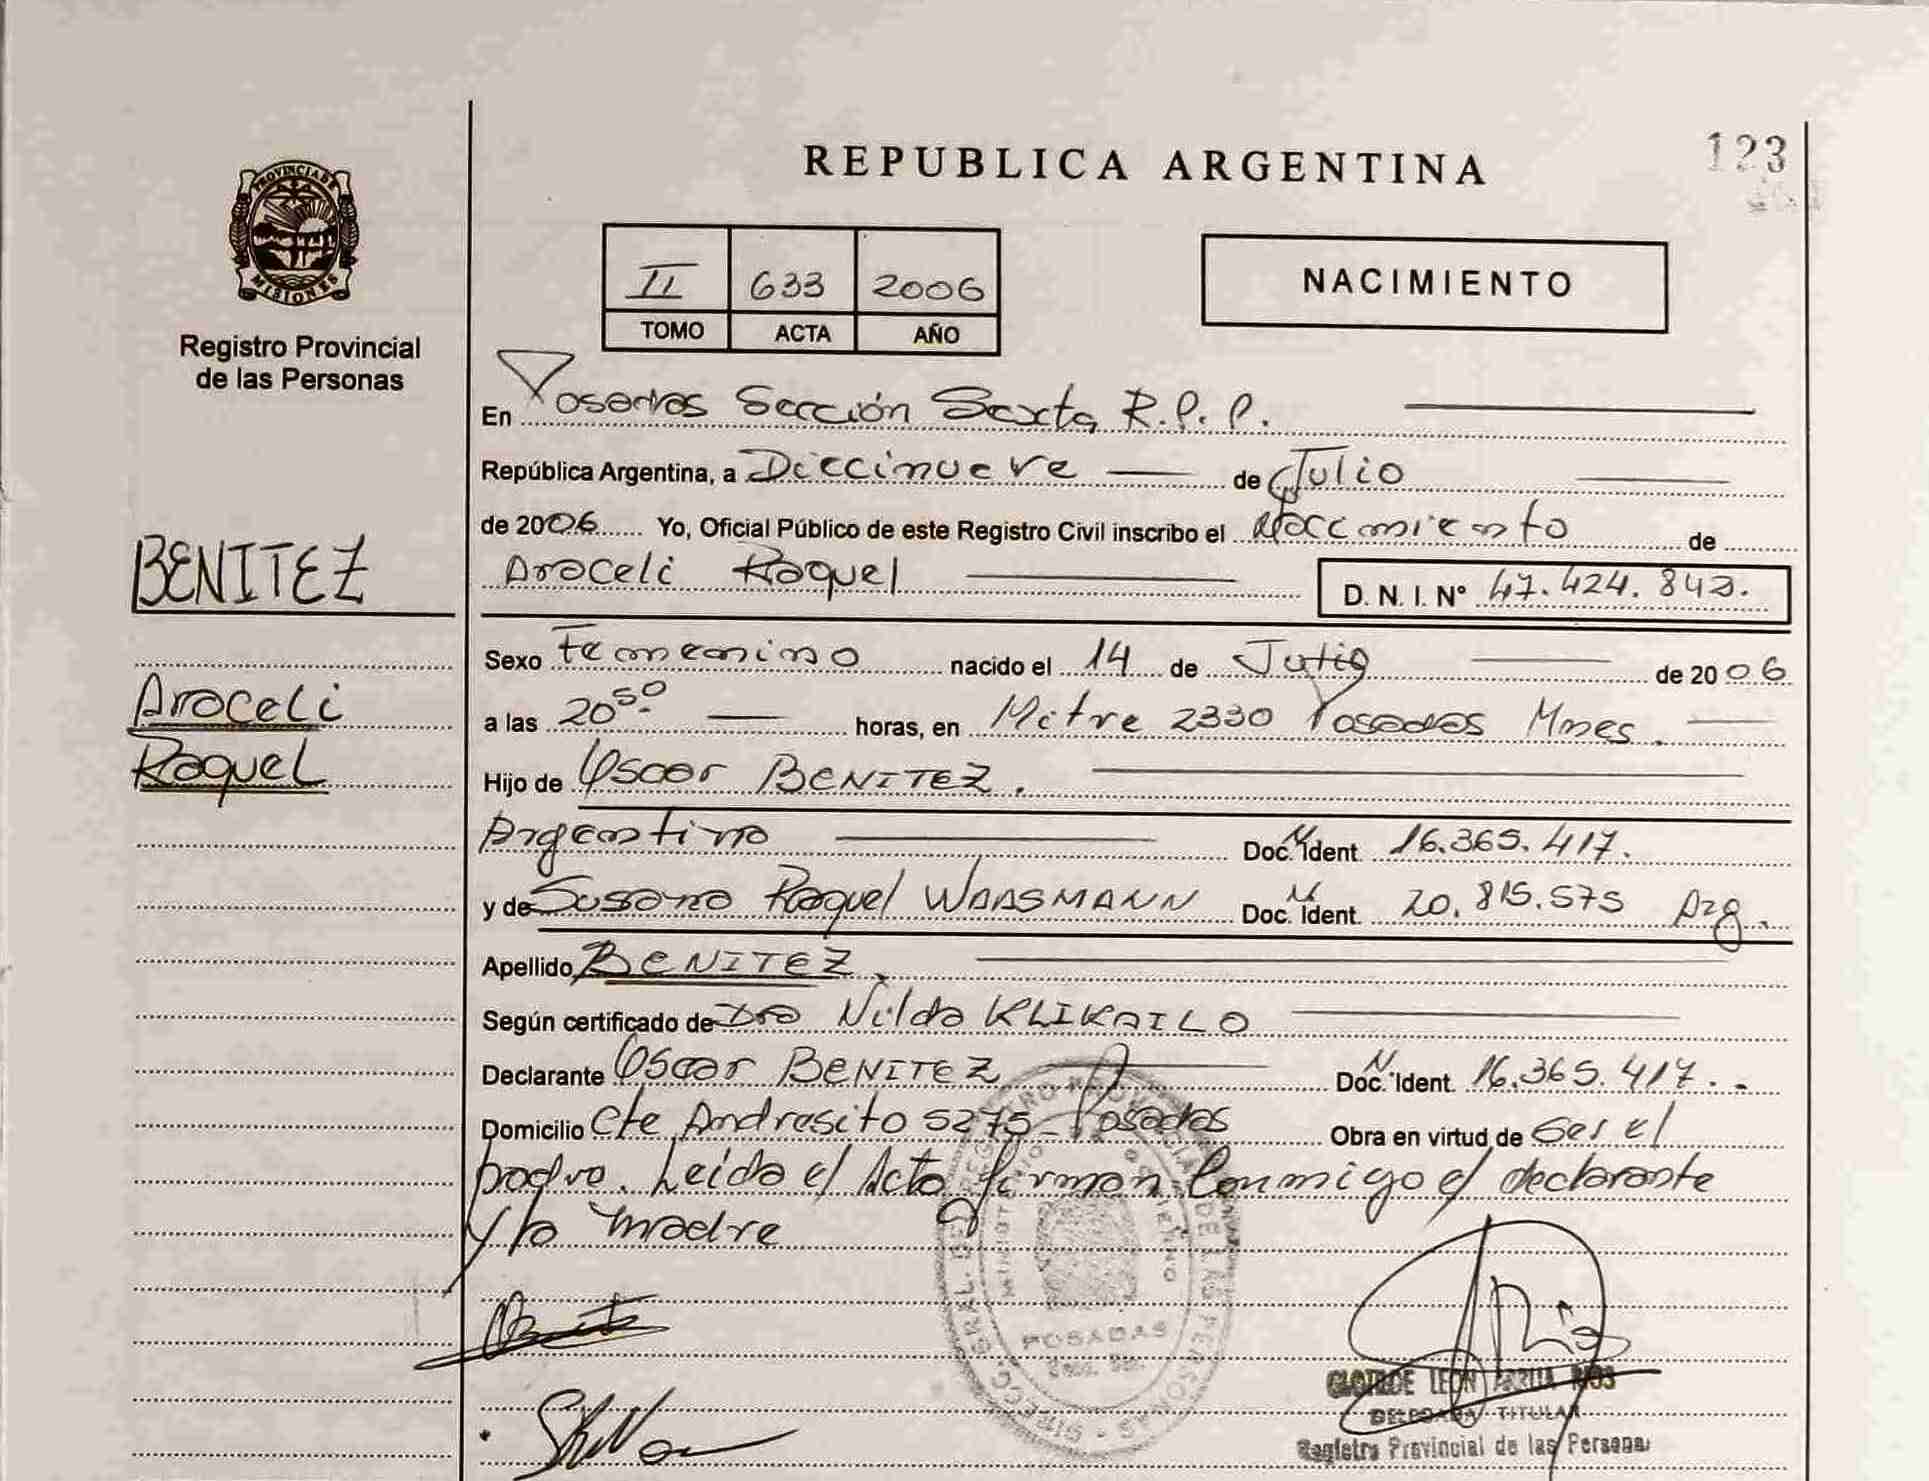 REPUBLICA ARGENTINA
123
PROVINCIA DE
MISIONES
Registro Provincial
de las Personas
II 633 2006
TOMO ACTA AÑO
NACIMIENTO
En Posadas Sección Sexta R.P.P.
República Argentina, a Diecinueve de Julio
de 2006 Yo, Oficial Público de este Registro Civil inscribo el Nacimiento de
Araceli Raquel D.N.I. Nº 47.424.842.
BENITEZ
Araceli
Raquel
Sexo Femenino nacido el 14 de Julio de 2006
a las 20 50 horas, en Mitre 2330 Posadas Mnes.
Hijo de Oscar BENITEZ.
Argentino Doc. N Ident. 16.365.417.
y de Susana Raquel WAASMANN Doc. N Ident. 20.815.575 Arg.
Apellido BENITEZ.
Según certificado de Dra Nilda KLIKAILO
Declarante Oscar BENITEZ Doc. N Ident. 16.365.417.
Domicilio Cte Andresito 5275 - Posadas Obra en virtud de Ser el
padre. Leída el Acta firman Conmigo el declarante
y la madre
POSADAS
DELEGADA TITULAR
Registro Provincial de las Personas